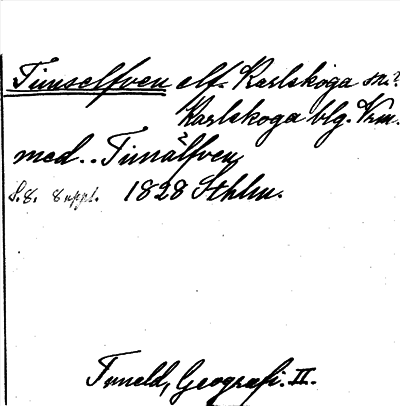 Timselfven elf. Karlskoga sn.?
Karlskoga blg. Vrm.
med.. Timälfven
S. 8. 8 uppl. 1828 Sthlm.
Tuneld, Geografi. II.